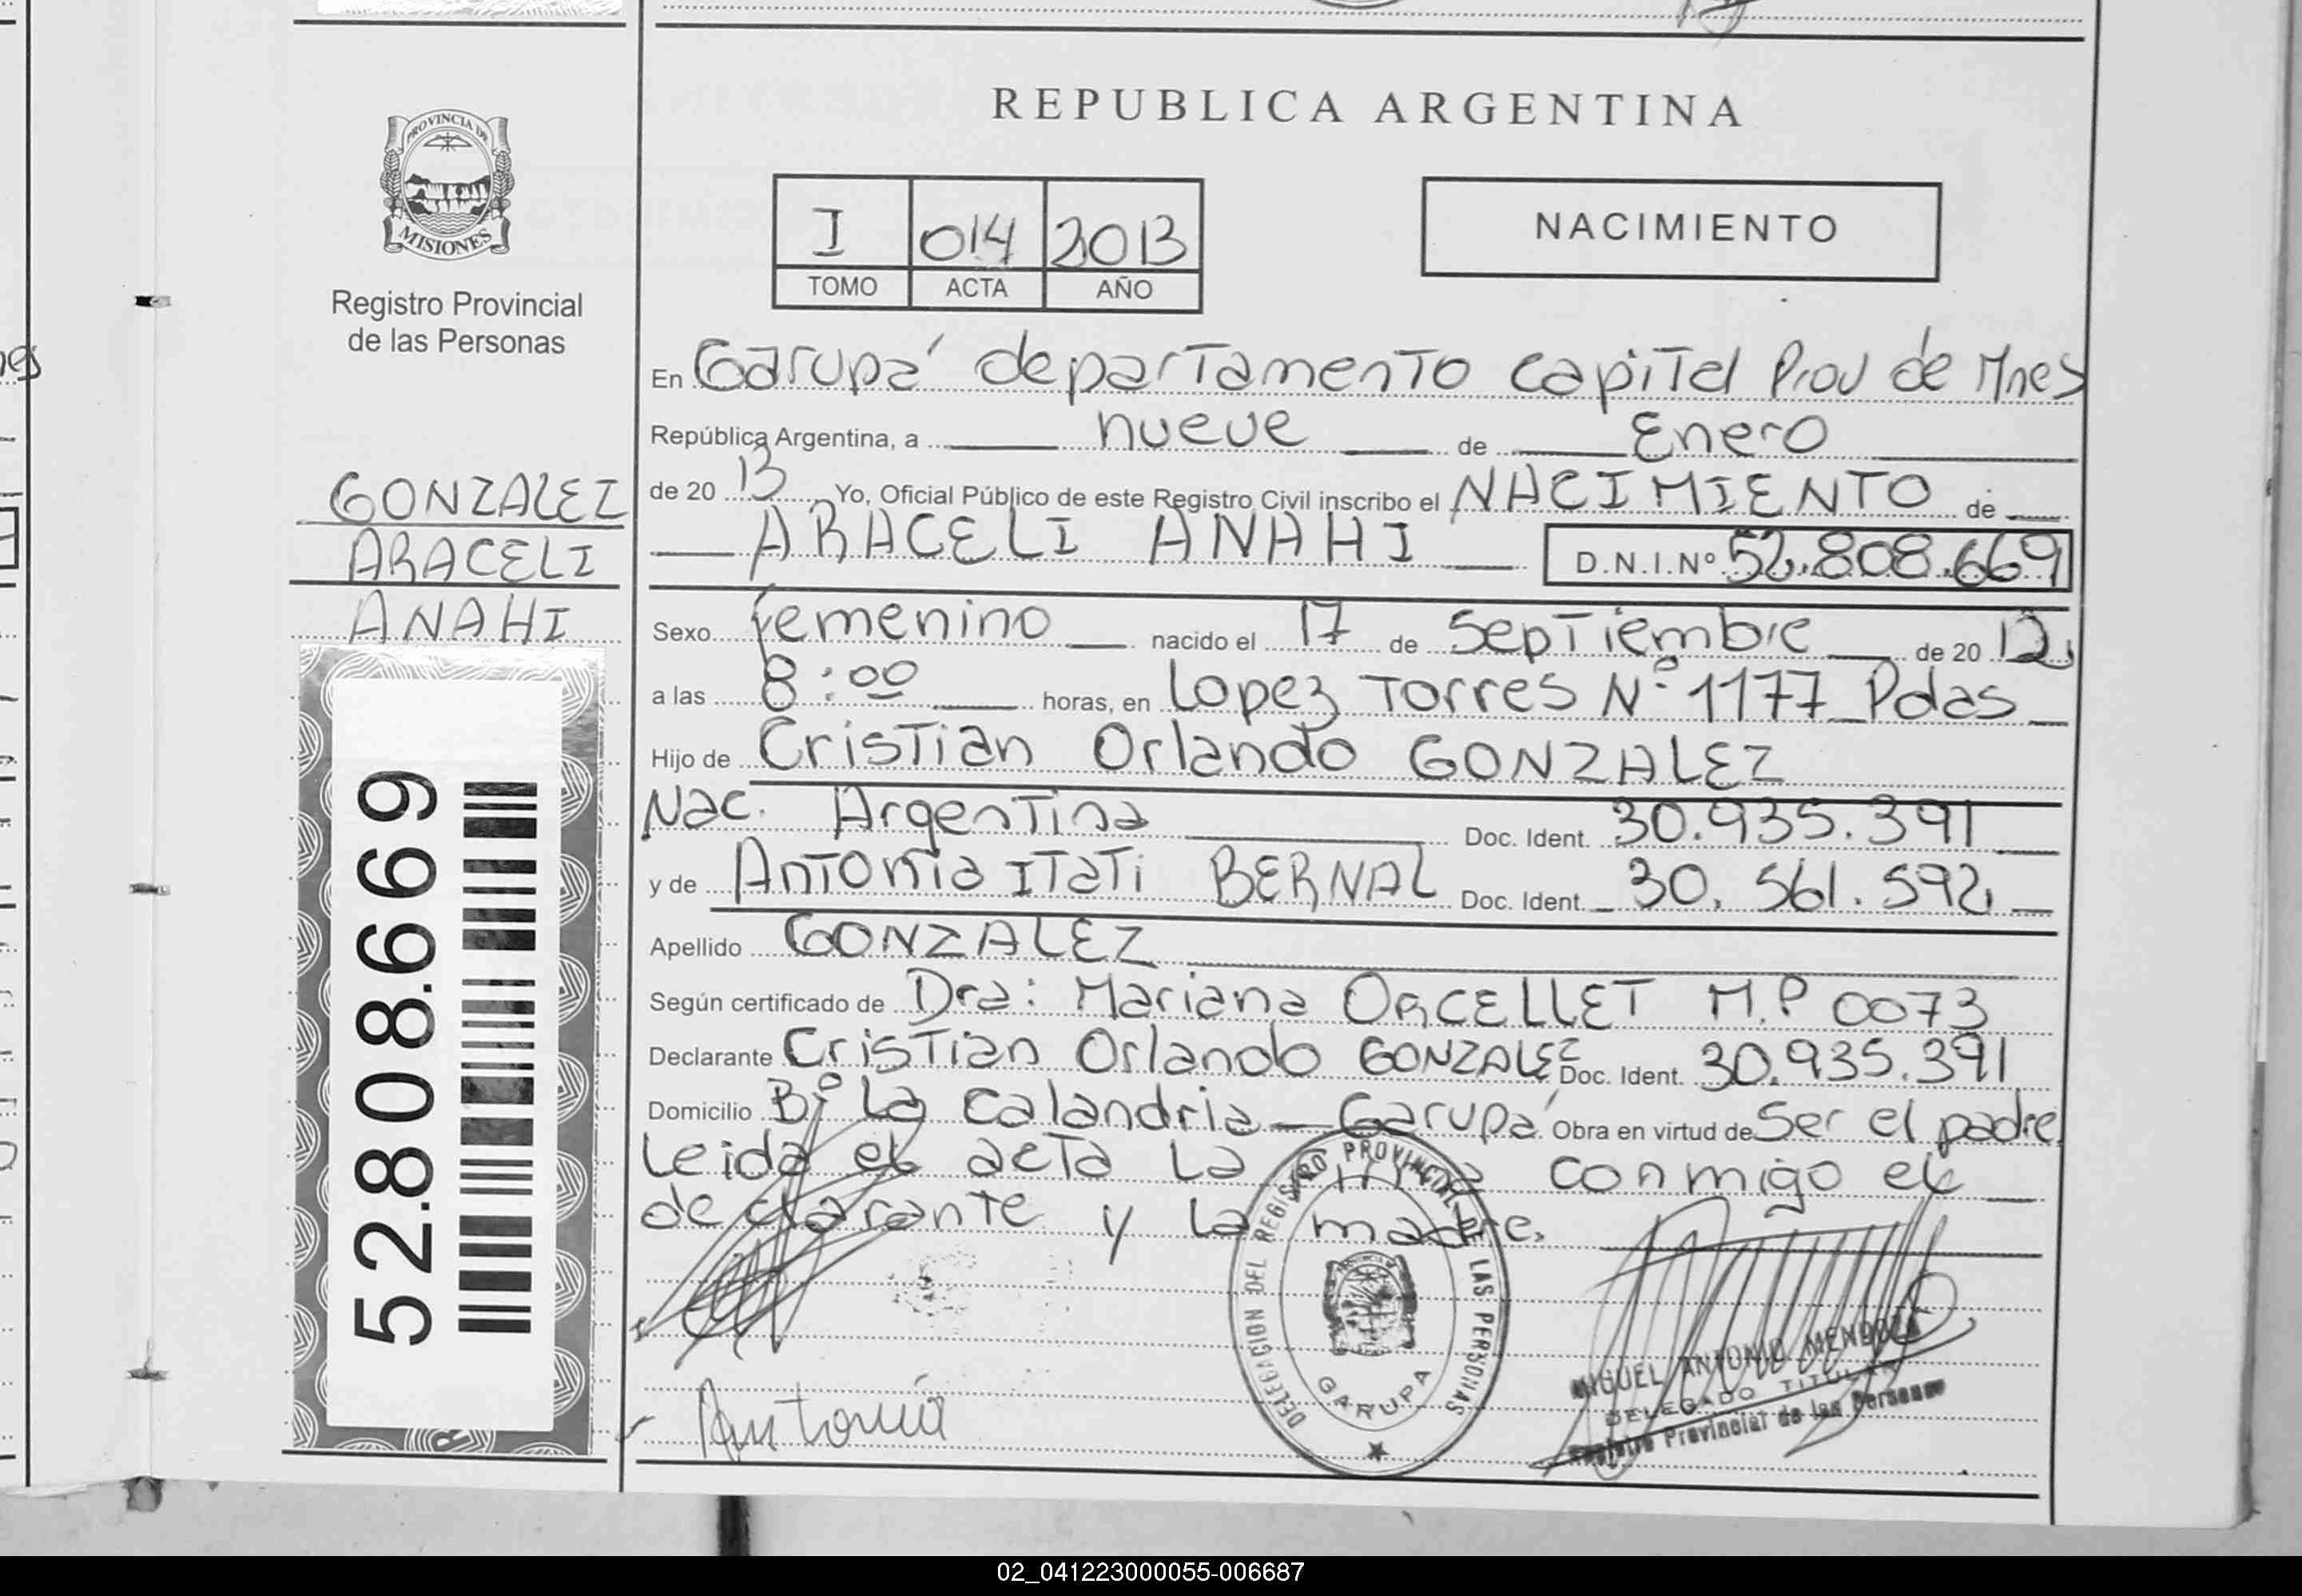 REPUBLICA ARGENTINA
PROVINCIA DE
MISIONES
Registro Provincial
de las Personas
I 014 2013
TOMO ACTA AÑO
NACIMIENTO
GONZALEZ
ARACELI
ANAHI
52.808.669
En Garupá departamento Capital Prov de Mnes
República Argentina, a nueve de Enero
de 20 13 Yo, Oficial Público de este Registro Civil inscribo el NACIMIENTO de
ARACELI ANAHI D.N.I.Nº 52.808.669
Sexo femenino nacido el 17 de Septiembre de 20 12,
a las 8:00 horas, en Lopez Torres Nº 1177 Pdas
Hijo de Cristian Orlando GONZALEZ
Nac. Argentina Doc. Ident. 30.935.391
y de Antonia Itati BERNAL Doc. Ident. 30.561.592
Apellido GONZALEZ
Según certificado de Dra: Mariana ORCELLET M.P 0073
Declarante Cristian Orlando GONZALEZ Doc. Ident. 30.935.391
Domicilio Bº La Calandria - Garupá. Obra en virtud de Ser el padre
Leida el acta La firma conmigo el
declarante y la madre.
DELEGACION DEL REGISTRO PROVINCIAL DE LAS PERSONAS
GARUPA
Antonia
MIGUEL ANTONIO MENDOZA
DELEGADO TITULAR
Registro Provincial de las Personas
02_041223000055-006687